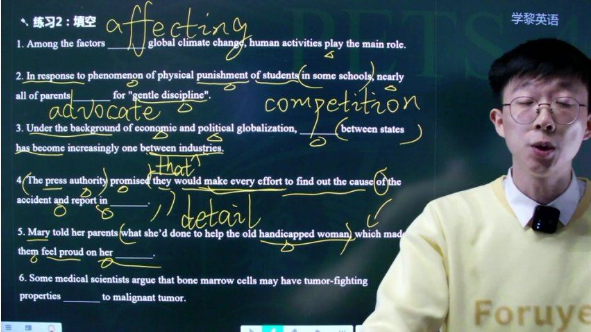 练习2：填空
affecting
学黎英语
1. Among the factors ______ global climate change, human activities play the main role.
2. In response to phenomenon of physical punishment of students in some schools, nearly
all of parents ______ for "gentle discipline".
advocate
competition
3. Under the background of economic and political globalization, ______ between states
has become increasingly one between industries.
that
4. The press authority promised they would make every effort to find out the cause of the
accident and report in ______.
detail
5. Mary told her parents what she'd done to help the old handicapped woman, which made
them feel proud on her
6. Some medical scientists argue that bone marrow cells may have tumor-fighting
properties ______ to malignant tumor.
Foruye